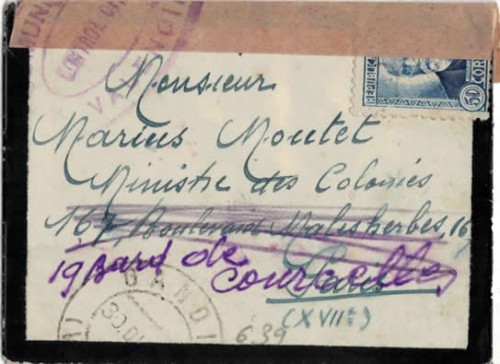 COMUNI
CONTROL
VALENCIA
REPUBLICA
50
COR
Monsieur
Marius Moutet
Ministre des Colonies
167, Boulevard Malesherbes, 167
19 Bard de
Courcelles
Paris
(XVIIe)
GANDI
30.DI
6.39